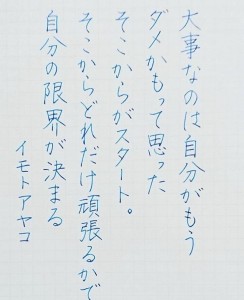 大事なのは自分がもう
ダメかもって思った
そこからがスタート。
そこからどれだけ頑張るかで
自分の限界が決まる
イモトアヤコ